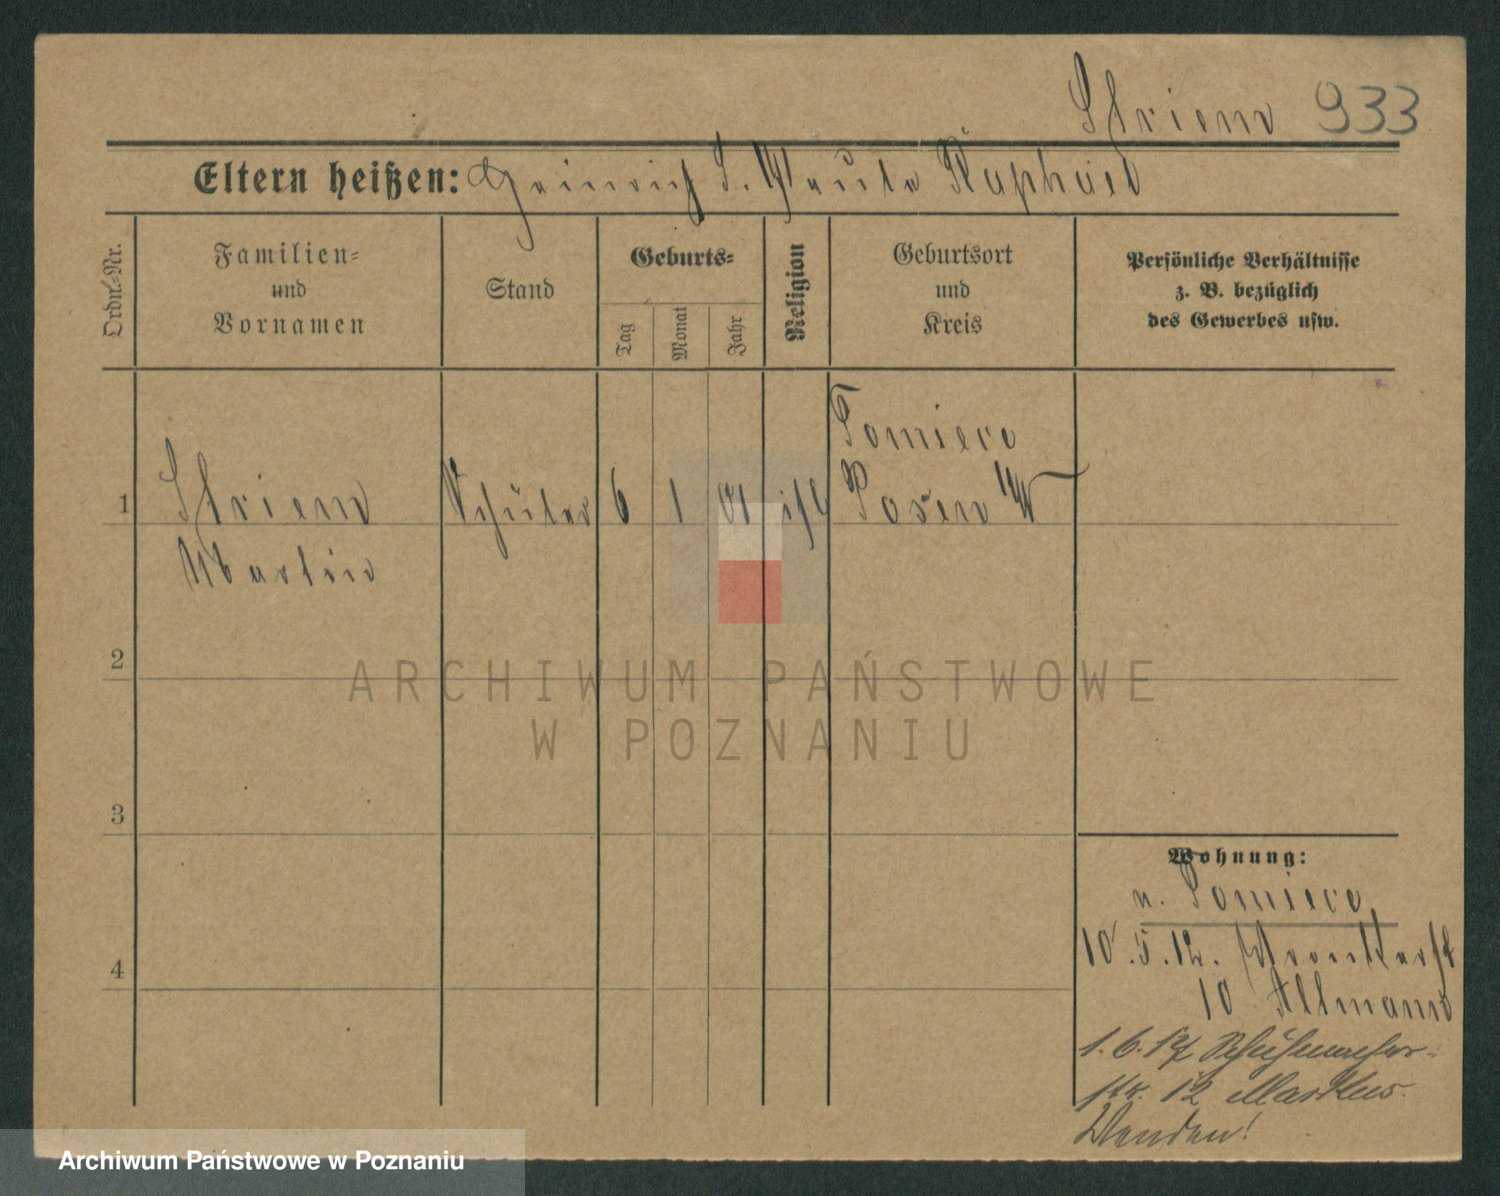 Striem 933
Eltern heißen: Heinrich S. Paula Raphael
Ordn.-Nr.
Familien=
und
Vornamen
Stand
Geburts=
Tag
Monat
Jahr
Religion
Geburtsort
und
Kreis
Persönliche Verhältnisse
z. B. bezüglich
des Gewerbes usw.
1
Striem
Martin
Schüler
6
1
01
isr
Posen W
2
3
4
ARCHIWUM PAŃSTWOWE
W POZNANIU
Wohnung:
n.
10.5.12.
10 Allmann
1.6.
str. 12 Markus.
Wenden!
Archiwum Państwowe w Poznaniu